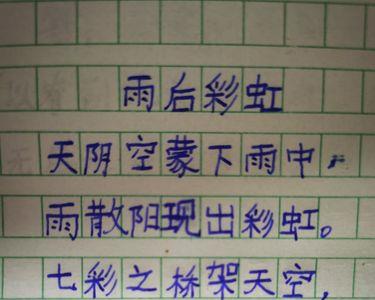 雨后彩虹
天阴空蒙下雨中,
雨散阳现出彩虹。
七彩之桥架天空,